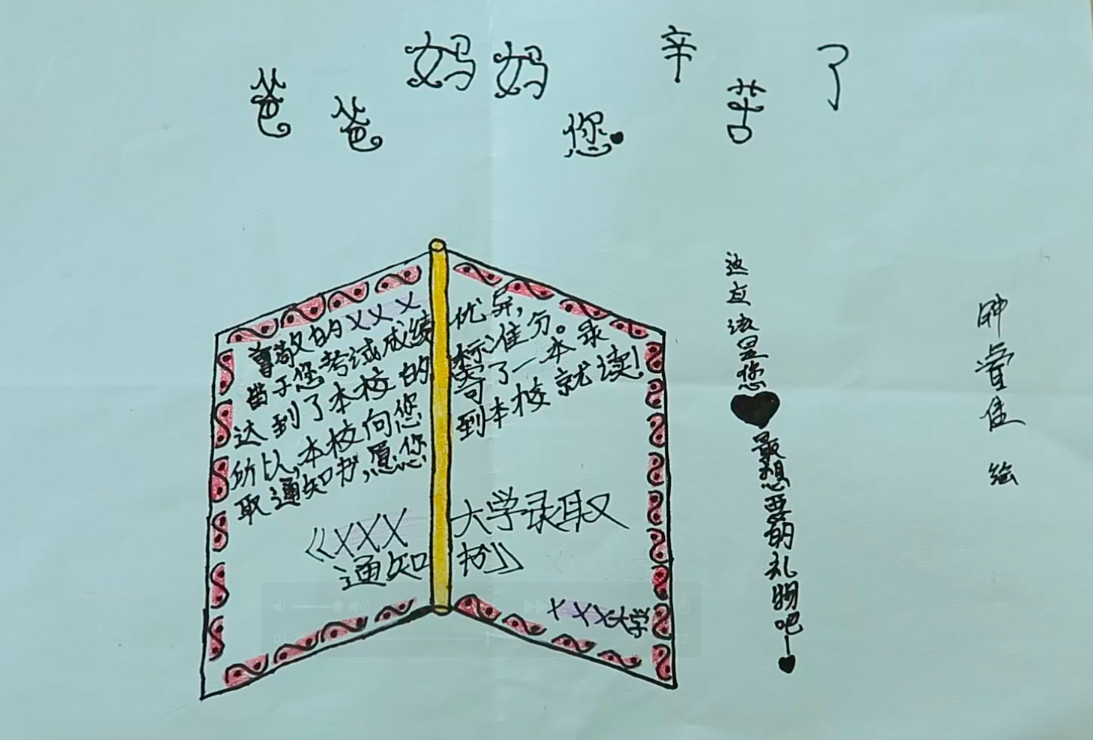 爸爸妈妈您辛苦了
尊敬的XXX
由于您考试成绩优异,
达到了本校的标准分。
所以,本校向您寄了一本录
取通知书,愿您到本校就读!
《XXX大学录取
通知书》
XXX大学
这应该是您
最想要的礼物吧
佳 绘